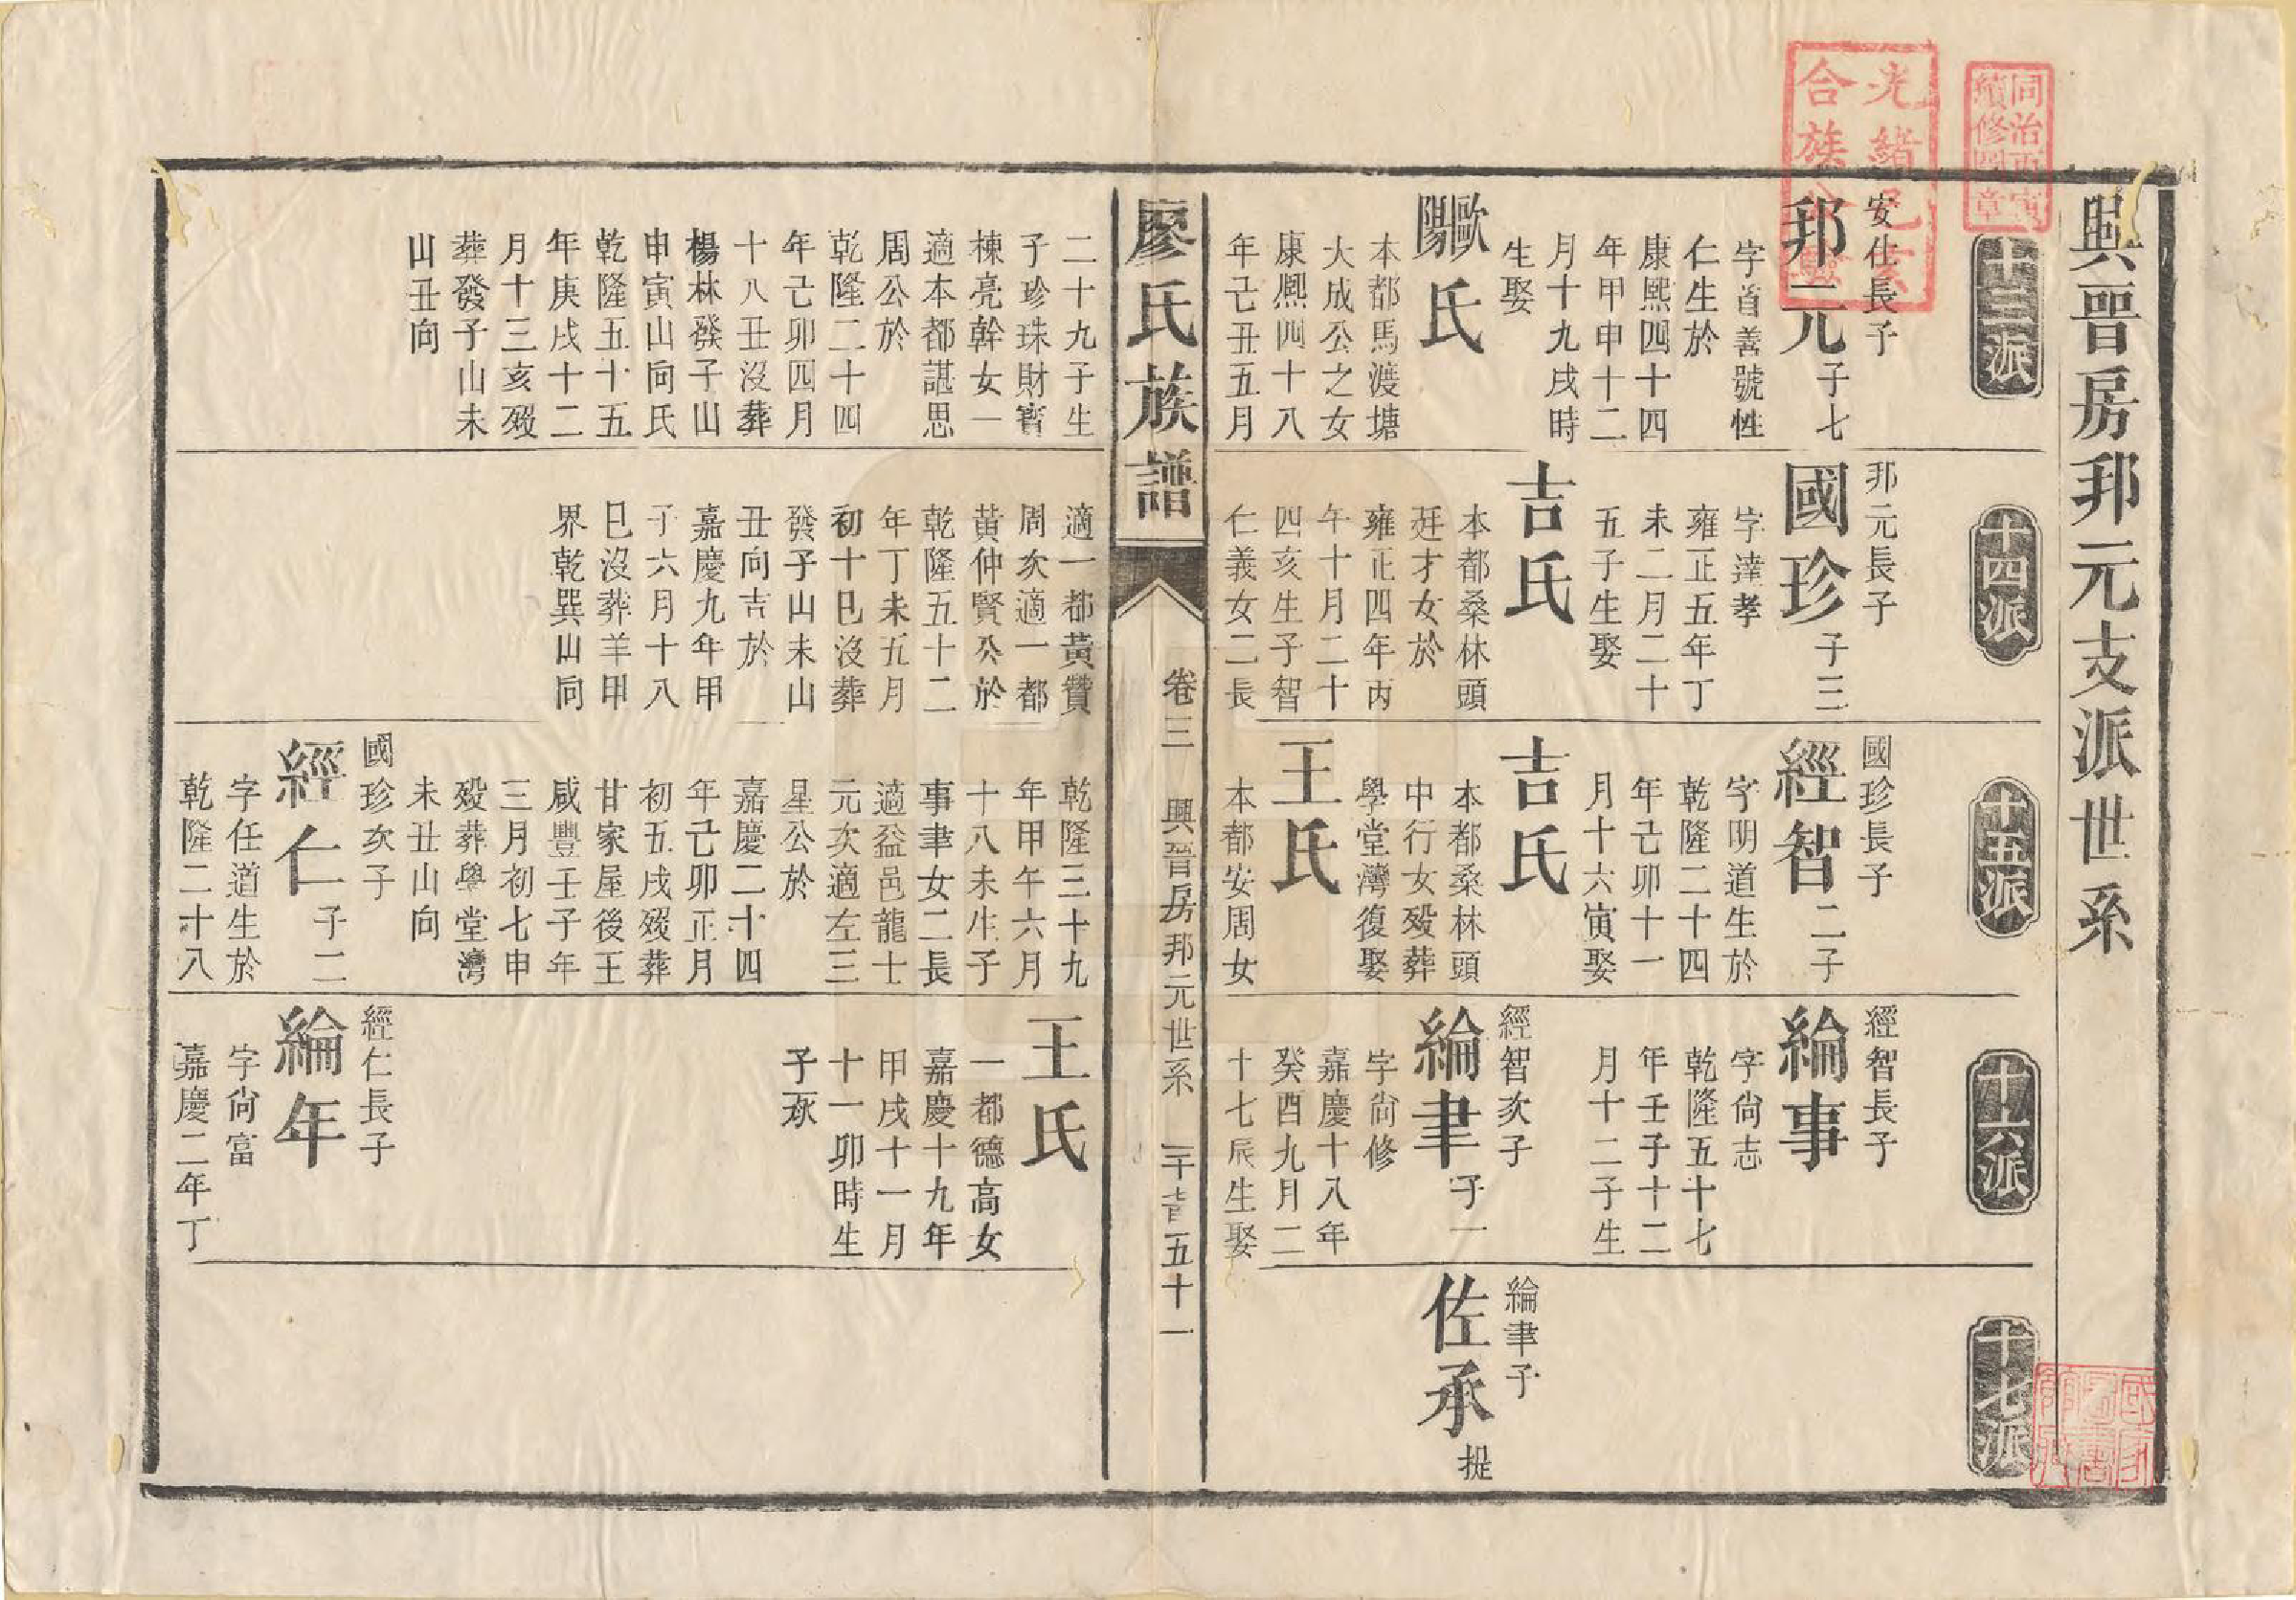 興晉房邦元支派世系
十三派
安仕長子
邦元子七
字首善號性
仁生於
康熙四十四
年甲申十二
月十九戌時
生娶
歐陽氏
本都馬渡塘
大成公之女
康熈四十八
年己丑五月
二十九子生
子珍珠財寳
棟亮幹女一
適本都諶思
周公於
乾隆二十四
年己卯四月
十八丑沒葬
楊林發子山
申寅山向氏
乾隆五十五
年庚戌十二
月十三亥歿
葬發子山未
山丑向
十四派
邦元長子
國珍子三
字達孝
雍正五年丁
未二月二十
五子生娶
吉氏
本都桑林頭
廷才女於
雍正四年丙
午十月二十
四亥生子智
仁義女二長
適一都黃贊
周次適一都
黃仲賢公於
乾隆五十二
年丁未五月
初十巳沒葬
發子山未山
丑向吉於
嘉慶九年甲
子六月十八
巳沒葬羊甲
界乾巽山向
十五派
國珍長子
經智二子
字明道生於
乾隆二十四
年己卯十一
月十六寅娶
吉氏
本都桑林頭
中行女歿葬
學堂灣復娶
王氏
本都安周女
乾隆三十九
年甲午六月
十八未生子
事聿女二長
適益邑龍士
元次適左三
星公於
嘉慶二十四
年己卯正月
初五戌歿葬
甘家屋後王
咸豐壬子年
三月初七申
歿葬學堂灣
未丑山向
國珍次子
經仁子二
字任道生於
乾隆二十八
十六派
經智長子
綸事
字尙志
乾隆五十七
年壬子十二
月十二子生
經智次子
綸聿子一
字尙修
嘉慶十八年
癸酉九月二
十七辰生娶
王氏
一都德高女
嘉慶十九年
甲戌十一月
十一卯時生
子承
經仁長子
綸年
字尙富
嘉慶二年丁
十七派
綸聿子
佐承提
廖氏族譜
卷三 興晉房邦元世系